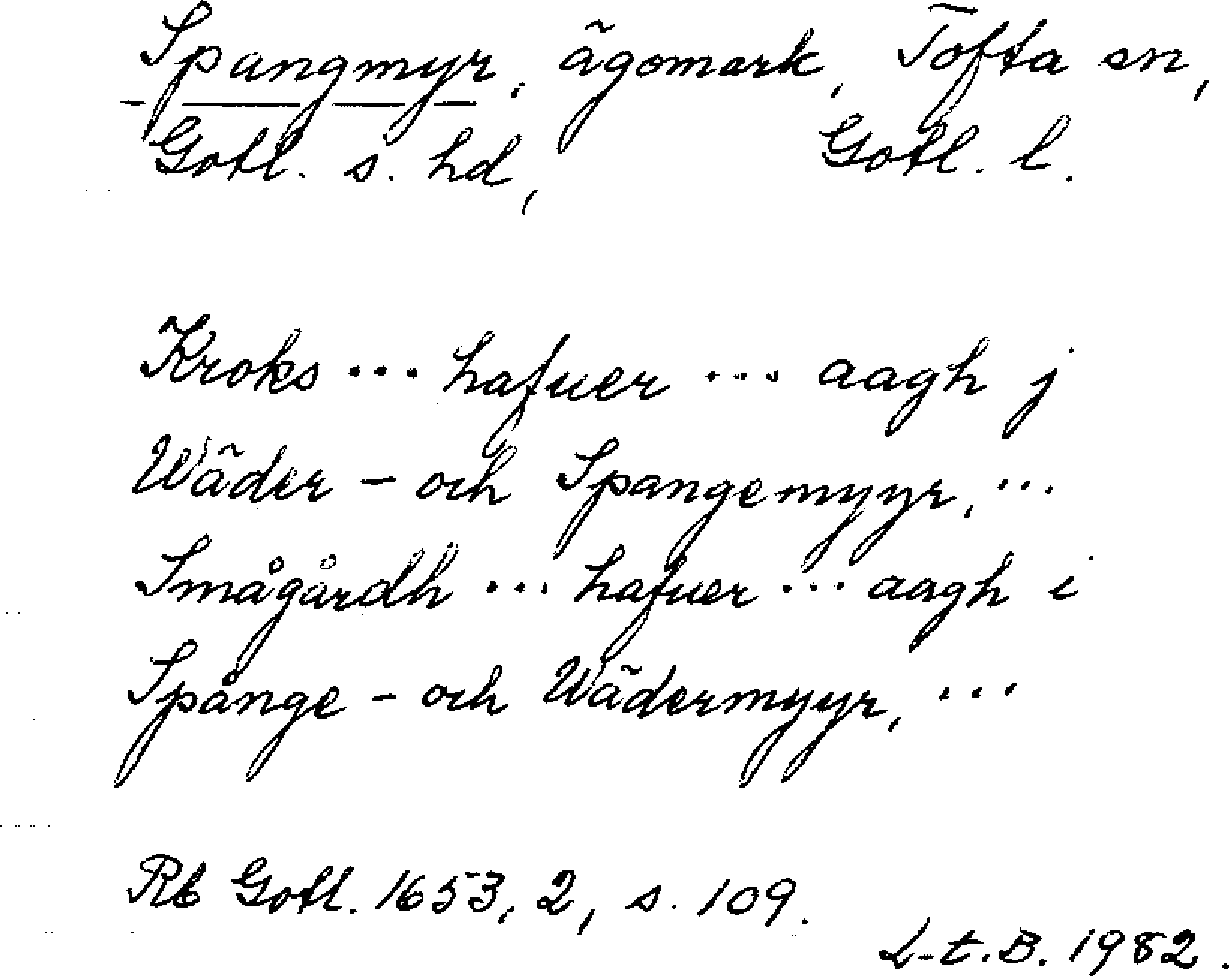 Spangmyr, ägomark, Tofta sn,
Gotl. s. hd, Gotl. l.
Kroks ... hafuer ... aagh j
Wäder - och Spangemyyr, ...
Smågårdh ... hafuer ... aagh i
Spånge - och Wädermyyr, ...
Rb Gotl. 1653, 2, s. 109.
L-t.B. 1982.